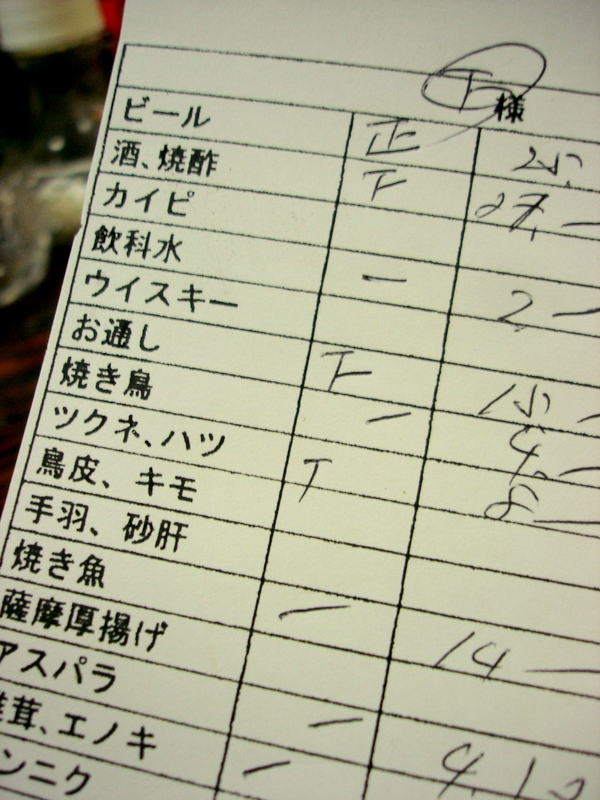 下様
ビール 正
酒、焼酢 下
カイピ
飲料水 一 2.—
ウイスキー
お通し 下
焼き鳥 一 4.—
ツクネ、ハツ T 8—
鳥皮、キモ
手羽、砂肝
焼き魚 一 14—
薩摩厚揚げ
アスパラ 一
茸、エノキ 一
ンニク